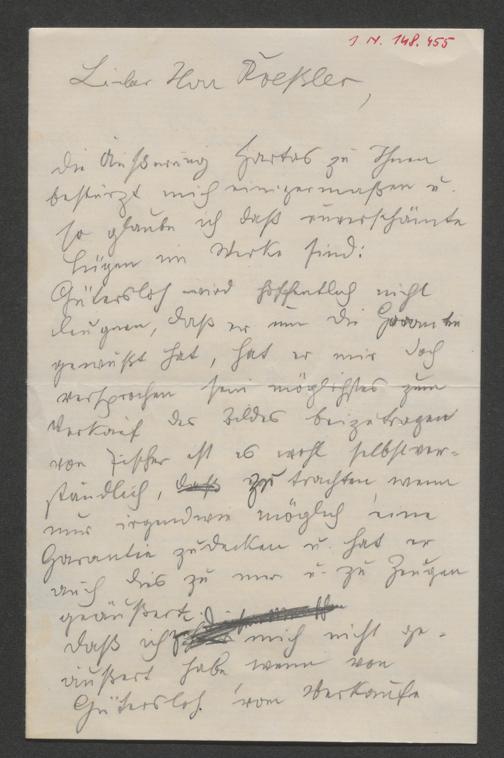 1 N. 148.455
Lieber Herr Roeßler,
die Äußerung Hartas zu Ihnen
bestürzt mich einigermaßen u.
so glaube ich daß unverschämte
Lügen im Werke sind:
Gütersloh wird hoffentlich nicht
leugnen, daß er um die Garantie
gewußt hat, hat er mir doch
versprochen sein möglichstes zum
Verkauf des Bildes beizutragen
von Fischer ist es wohl selbstver-
ständlich, daß zu trachten wenn
nur irgendwie möglich eine
Garantie zu decken u. hat er
auch dies zu mir u. zu Zeugen
geäußert.
daß ich mich nicht ge-
äußert habe wenn von
Gütersloh vom Verkaufe